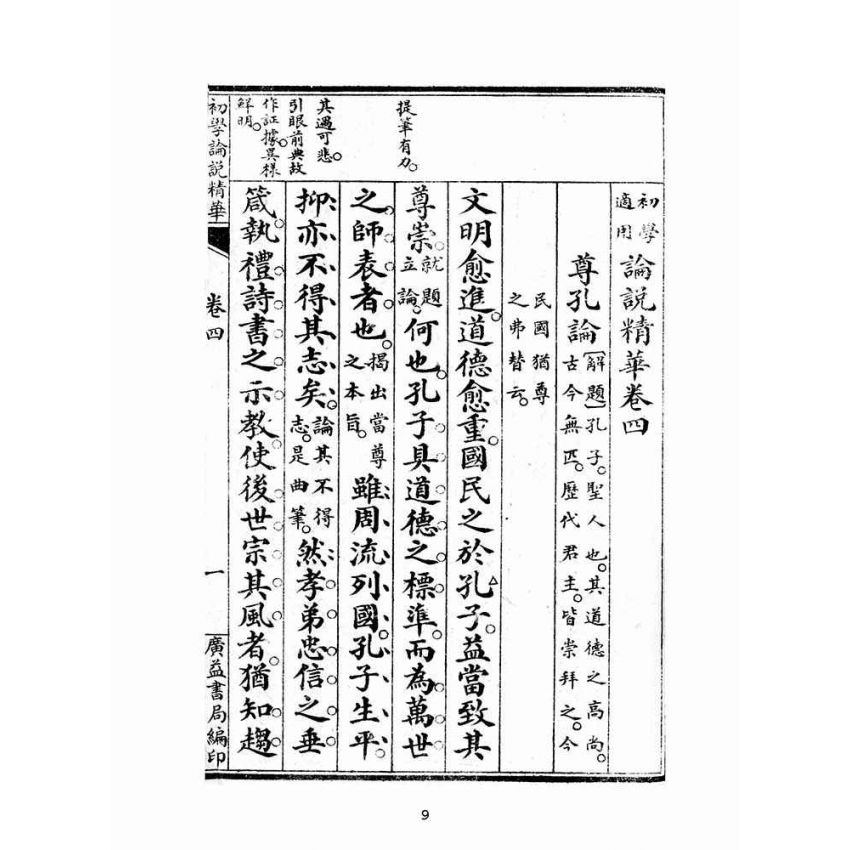 初學適用論說精華卷四
尊孔論
〔解題〕孔子。聖人也。其道德之高尚。
古今無匹。歷代君主。皆崇拜之。今
民國猶尊
之弗替云。
文明愈進。道德愈重。國民之於孔子。益當致其
尊崇。就題立論。何也。孔子具道德之標準。而為萬世
之師表者也。揭出當尊之本旨。雖周流列國。孔子生平。
抑亦不得其志矣。論其不得志。是曲筆。然孝弟忠信之垂
箴。執禮詩書之示教。使後世宗其風者。猶知趨
提筆有力。
其遇可悲。
引眼前典故
作証據。異樣
鮮明。
初學論說精華
卷四
一
廣益書局編印
9